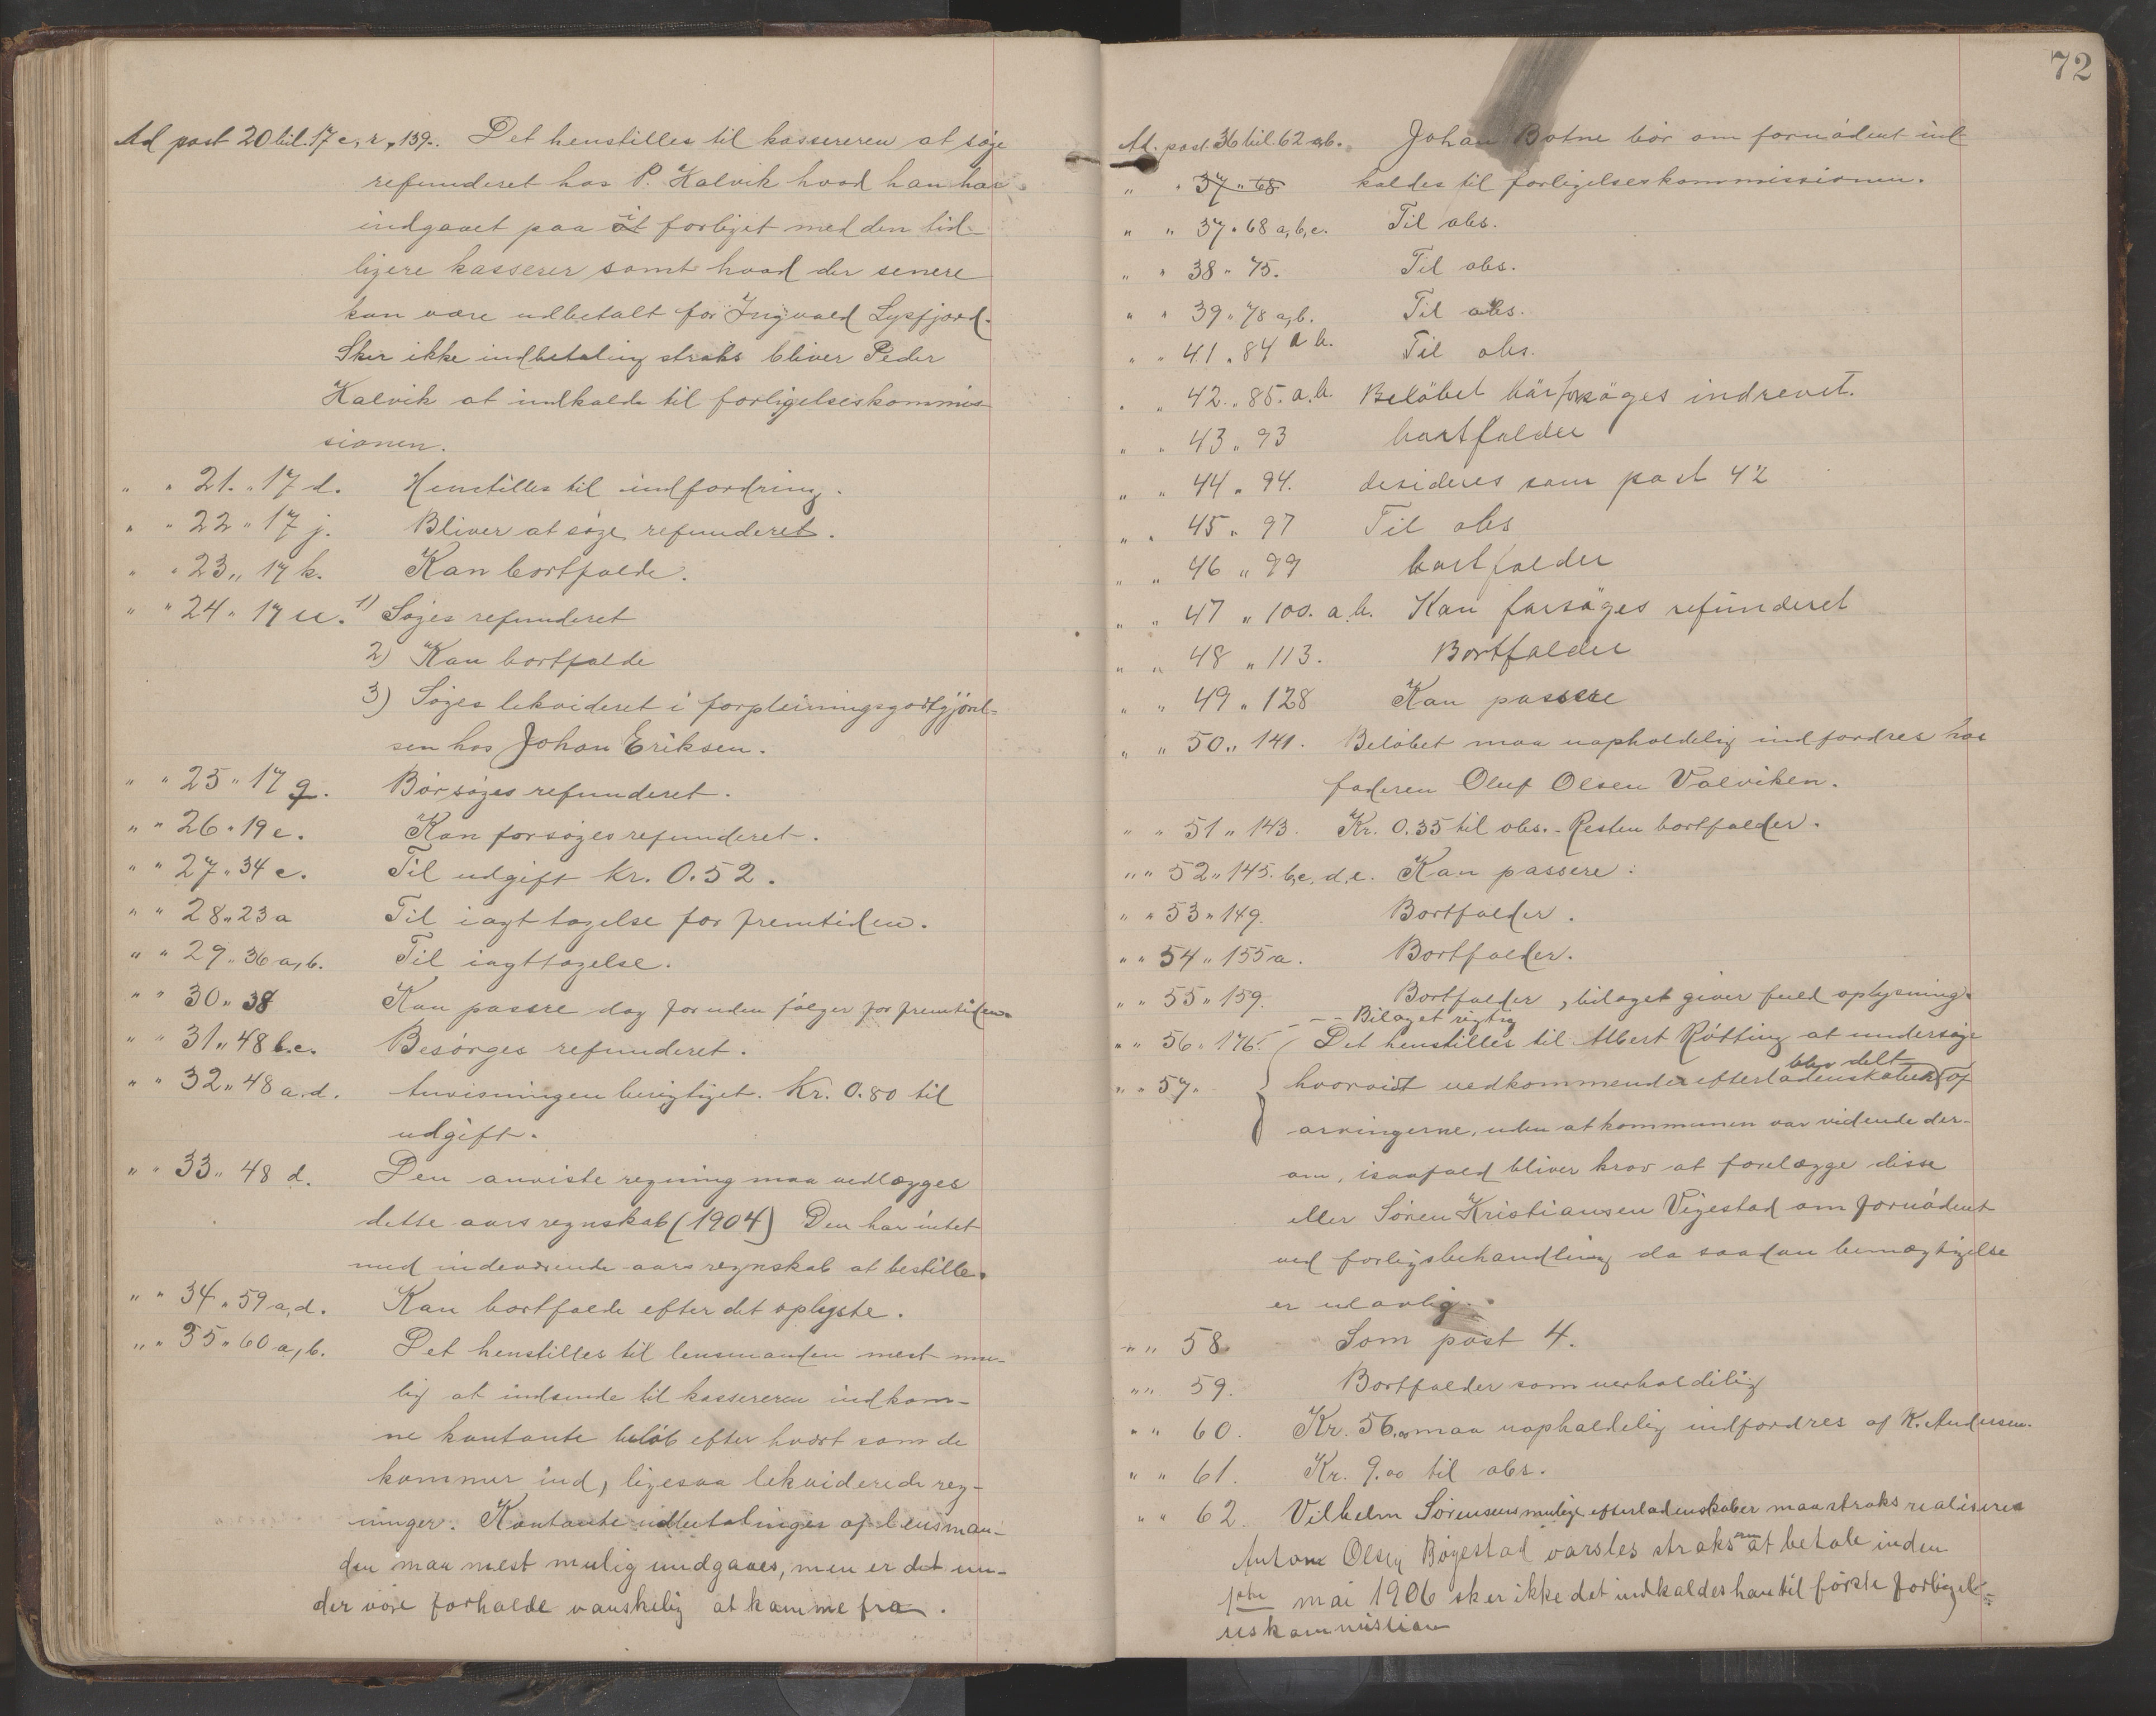 Ad post 20 bil. 17 c, r, 139. Det henstilles til kassereren at søge
refunderet hos P. Kalvik hvad han har
indgaaet paa i forliget med den tid-
ligere kasserer samt hvad der senere
kan være udbetalt for Ingvald Lysfjord.
Sker ikke indbetaling straks bliver Peder
Kalvik at indkalde til forligelseskommis-
sionen.
" " 21. " 17 d. Henstilles til indfordring.
" " 22 " 17 j. Bliver at søge refunderet.
" " 23 " 17 k. Kan bortfalde.
" " 24 " 17 u. 1) Søges refunderet
2) Kan bortfalde
3) Søges likvideret i forpleiningsgodtgjörel-
sen hos Johan Eriksen.
" " 25 " 17 q. Bör søges refunderet.
" " 26 " 19 c. Kan forsøges refunderet.
" " 27 " 34 c. Til udgift Kr. 0.52.
" " 28 " 23 a Til iagttagelse for fremtiden.
" " 29 " 36 a, b. Til iagttagelse.
" " 30 " 38 Kan passere dog foruden følger for fremtiden.
" " 31 " 48 b.c. Besørges refunderet.
" " 32 " 48 a.d. Anvisningen berigtiget. Kr. 0.80 til
udgift.
" " 33 " 48 d. Den anviste regning maa vedlægges
dette aars regnskab (1904) Den har intet
med indeværende aars regnskab at bestille.
" " 34 " 59 a, d. Kan bortfalde efter det oplyste.
" " 35 " 60 a, b. Det henstilles til lensmanden mest mu-
lig at indsende til kassereren indkom-
ne kontante beløb efter hvert som de
kommer ind, ligesaa likviderede reg-
ninger. Kontante udbetalinger af lensman-
den maa mest mulig undgaaes, men er det un-
der vore forholde vanskelig at komme fra.
72
Ad. post. 36 bil. 62 a,b. Johan Botne bör om fornødent ind-
" " 37 " 68 kaldes til forligelseskommissionen.
" " 37 " 68 a, b, c. Til obs.
" " 38 " 75. Til obs.
" " 39 " 78 a, b. Til obs.
" " 41 " 84 a b. Til obs.
" " 42 " 85. a.b. Beløbet bör forsøges indrevet.
" " 43 " 93 bortfalder
" " 44 " 94. desideres som post 42
" " 45 " 97 Til obs
" " 46 " 99 bortfalder
" " 47 " 100. a.b. Kan forsøges refunderet
" " 48 " 113. Bortfalder
" " 49 " 128 Kan passere
" " 50 " 141. Beløbet maa uopholdelig indfordres hos
faderen Oluf Olsen Valviken.
" " 51 " 143. Kr. 0.35 til obs. - Resten bortfalder.
" " 52 " 145. b, c, d, e. Kan passere.
" " 53 " 149. Bortfalder.
" " 54 " 155 a. Bortfalder.
" " 55 " 159. Bortfalder, bilaget giver fuld oplysning.
- - Bilaget rigtig
" " 56 " 176. Det henstilles til Albert Røtting at undersøge
blev delt
" " 57 " hvorvidt vedkommende efterladenskaber af
arvingerne, uden at kommunen var vidende der-
om, isaafald bliver krav at forelægge disse
eller Sören Kristiansen Vigestad om fornödent
ved forligsbehandling da saadan bemægtigelse
er ulovlig.
" " 58 Som post 4.
" " 59. Bortfalder som uerholdelig
" " 60. Kr. 56.00 maa uopholdelig indfordres af K. Andersen.
" " 61. Kr. 9.00 til obs.
" " 62. Vilhelm Sörensens mulige efterladenskaber maa straks realiseres
Anton Olsen Bøgestad varsles straks om at betale inden
1ste mai 1906 sker ikke det indkaldes han til förste forligel-
seskommission